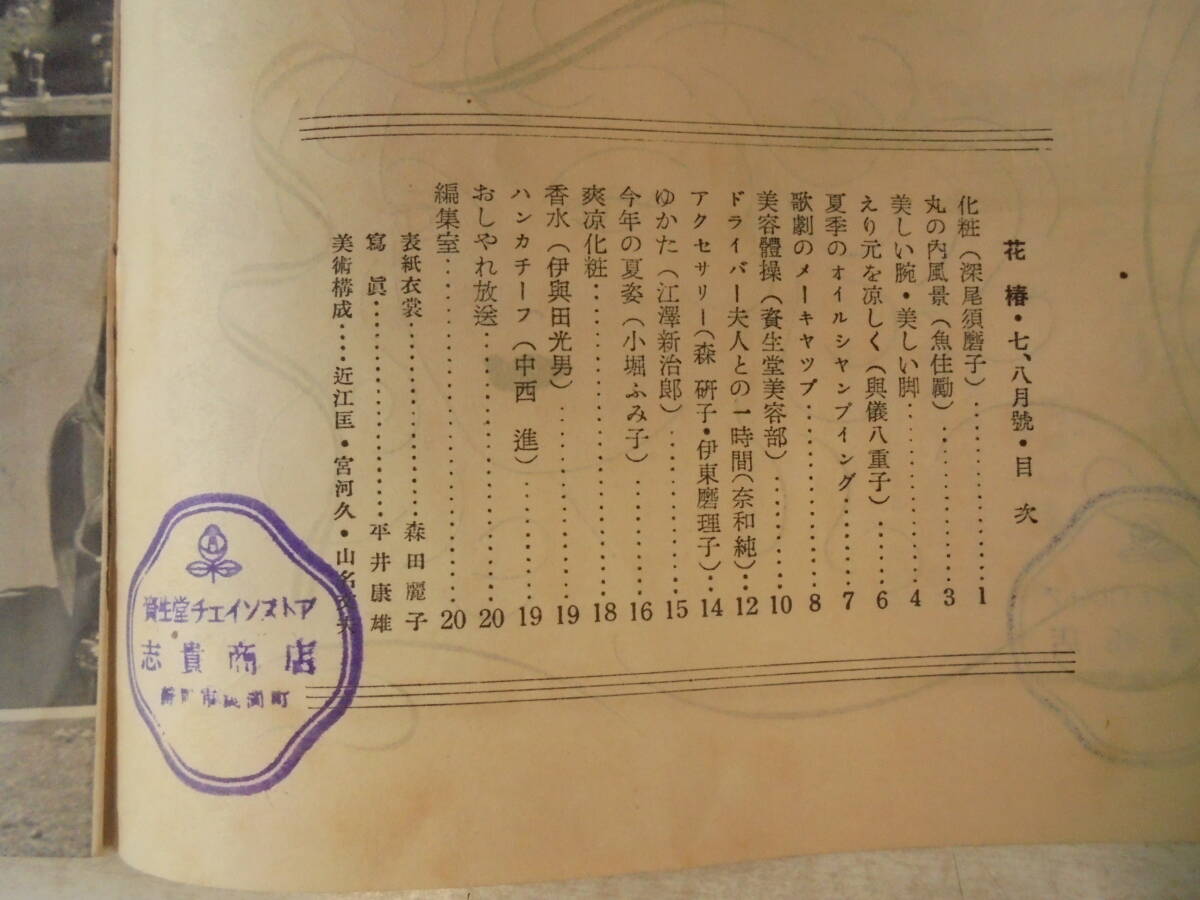 花椿・七、八月號・目次
化粧（深尾須磨子）…………1
丸の内風景（魚住勵）…………3
美しい腕・美しい脚…………4
えり元を凉しく（與儀八重子）…………6
夏季のオイルシャンプイング…………7
歌劇のメーキャップ…………8
美容體操（資生堂美容部）…………10
ドライバー夫人との一時間（奈和純）…12
アクセサリー（森 研子・伊東磨理子）…14
ゆかた（江澤新治郎）…………15
今年の夏姿（小堀ふみ子）…………16
爽凉化粧…………18
香水（伊與田光男）…………19
ハンカチーフ（中西 進）…………19
おしやれ放送…………20
編集室…………20
表紙衣裳…………森田麗子
寫眞…………平井康雄
美術構成……近江匡・宮河久・山名
資生堂チェインストア
志貴商店
市 町